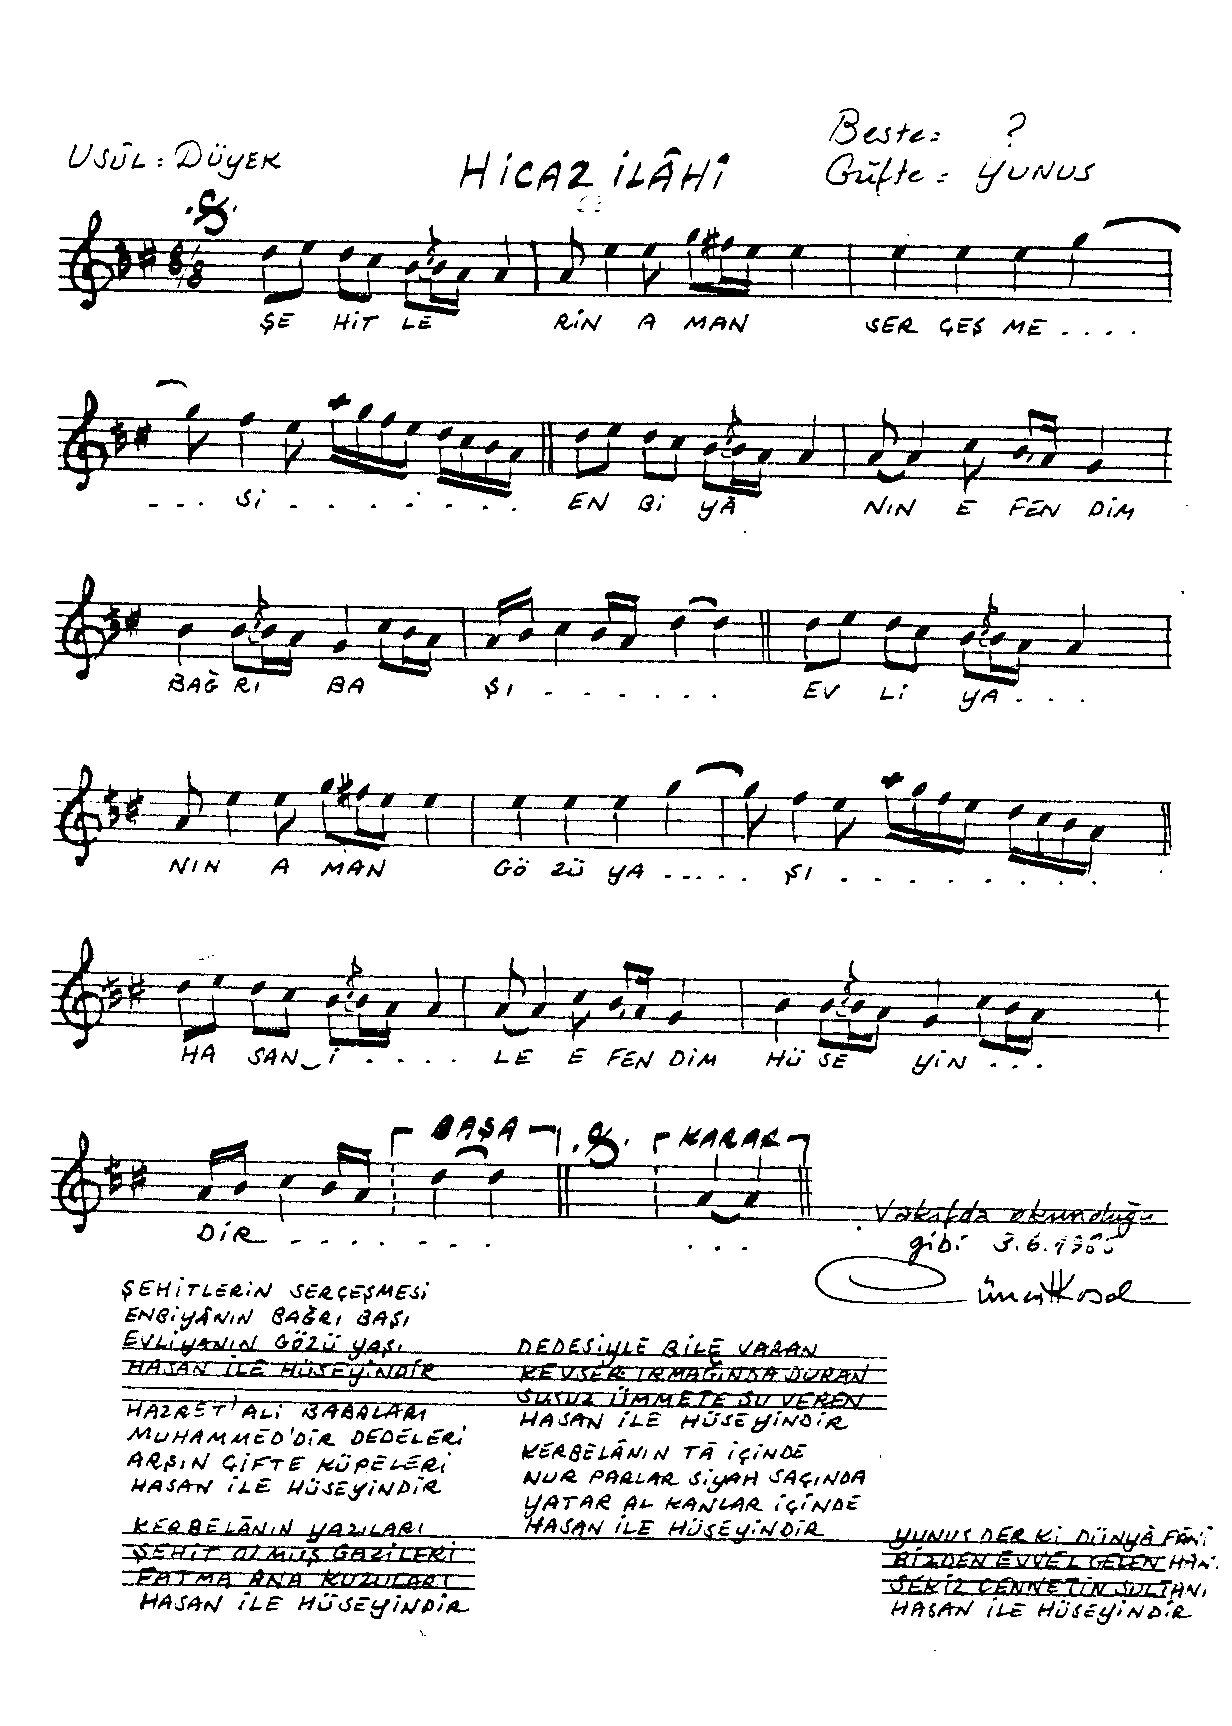 USÛL : DÜYEK
HİCAZ İLÂHİ
Beste = ?
Güfte = YUNUS
8/8
ŞE HİT LE RİN A MAN SER ÇEŞ ME . . . .
. . . Sİ . . . . . . . EN Bİ YÂ NIN E FEN DİM
BAĞ RI BA ŞI . . . . . . EV Lİ YA . . .
NIN A MAN GÖ ZÜ YA . . . . . ŞI . . . . . . .
HA SAN İ . . . . LE E FEN DİM HÜ SE YİN . . .
BAŞA KARAR
DİR . . . . . . . . . .
Vakıfda okunduğu
gibi 3.6.
ŞEHİTLERİN SERÇEŞMESİ
ENBİYÂNIN BAĞRI BAŞI
EVLİYANIN GÖZÜ YAŞI
HASAN İLE HÜSEYİNDİR
HAZRET'ALİ BABALARI
MUHAMMED'DİR DEDELERİ
ARŞIN ÇİFTE KÜPELERİ
HASAN İLE HÜSEYİNDİR
KERBELÂNIN YAZILARI
ŞEHİT OLMUŞ GAZİLERİ
FATMA ANA KUZULARI
HASAN İLE HÜSEYİNDİR
DEDESİYLE BİLE VARAN
KEVSER IRMAĞINDA DURAN
SUSUZ ÜMMETE SU VEREN
HASAN İLE HÜSEYİNDİR
KERBELÂNIN TÂ İÇİNDE
NUR PARLAR SİYAH SAÇINDA
YATAR AL KANLAR İÇİNDE
HASAN İLE HÜSEYİNDİR
YUNUS DER Kİ DÜNYÂ FÂNİ
BİZDEN EVVEL GELEN HANİ
SEKİZ CENNETİN SULTANI
HASAN İLE HÜSEYİNDİR